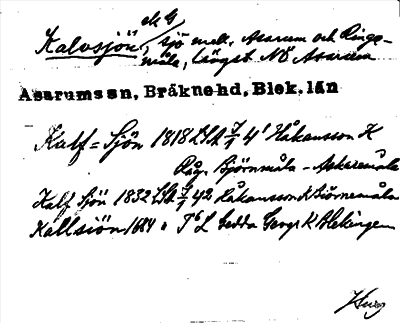 Kalvsjön, sjö mell. Asarum och Ringa-
måla, längst NÖ Asarum
Asarums sn, Bräkne hd, Blek. län
Kalf=Sjön 1818 LSA 4 Håkansson K
Råg. Björnmåla - Askaremåla
Kalf Sjön 1832 LSA 42 Håkansson K Björnemåla
Kallsiön 1684 Gedda Geogr K Blekingen